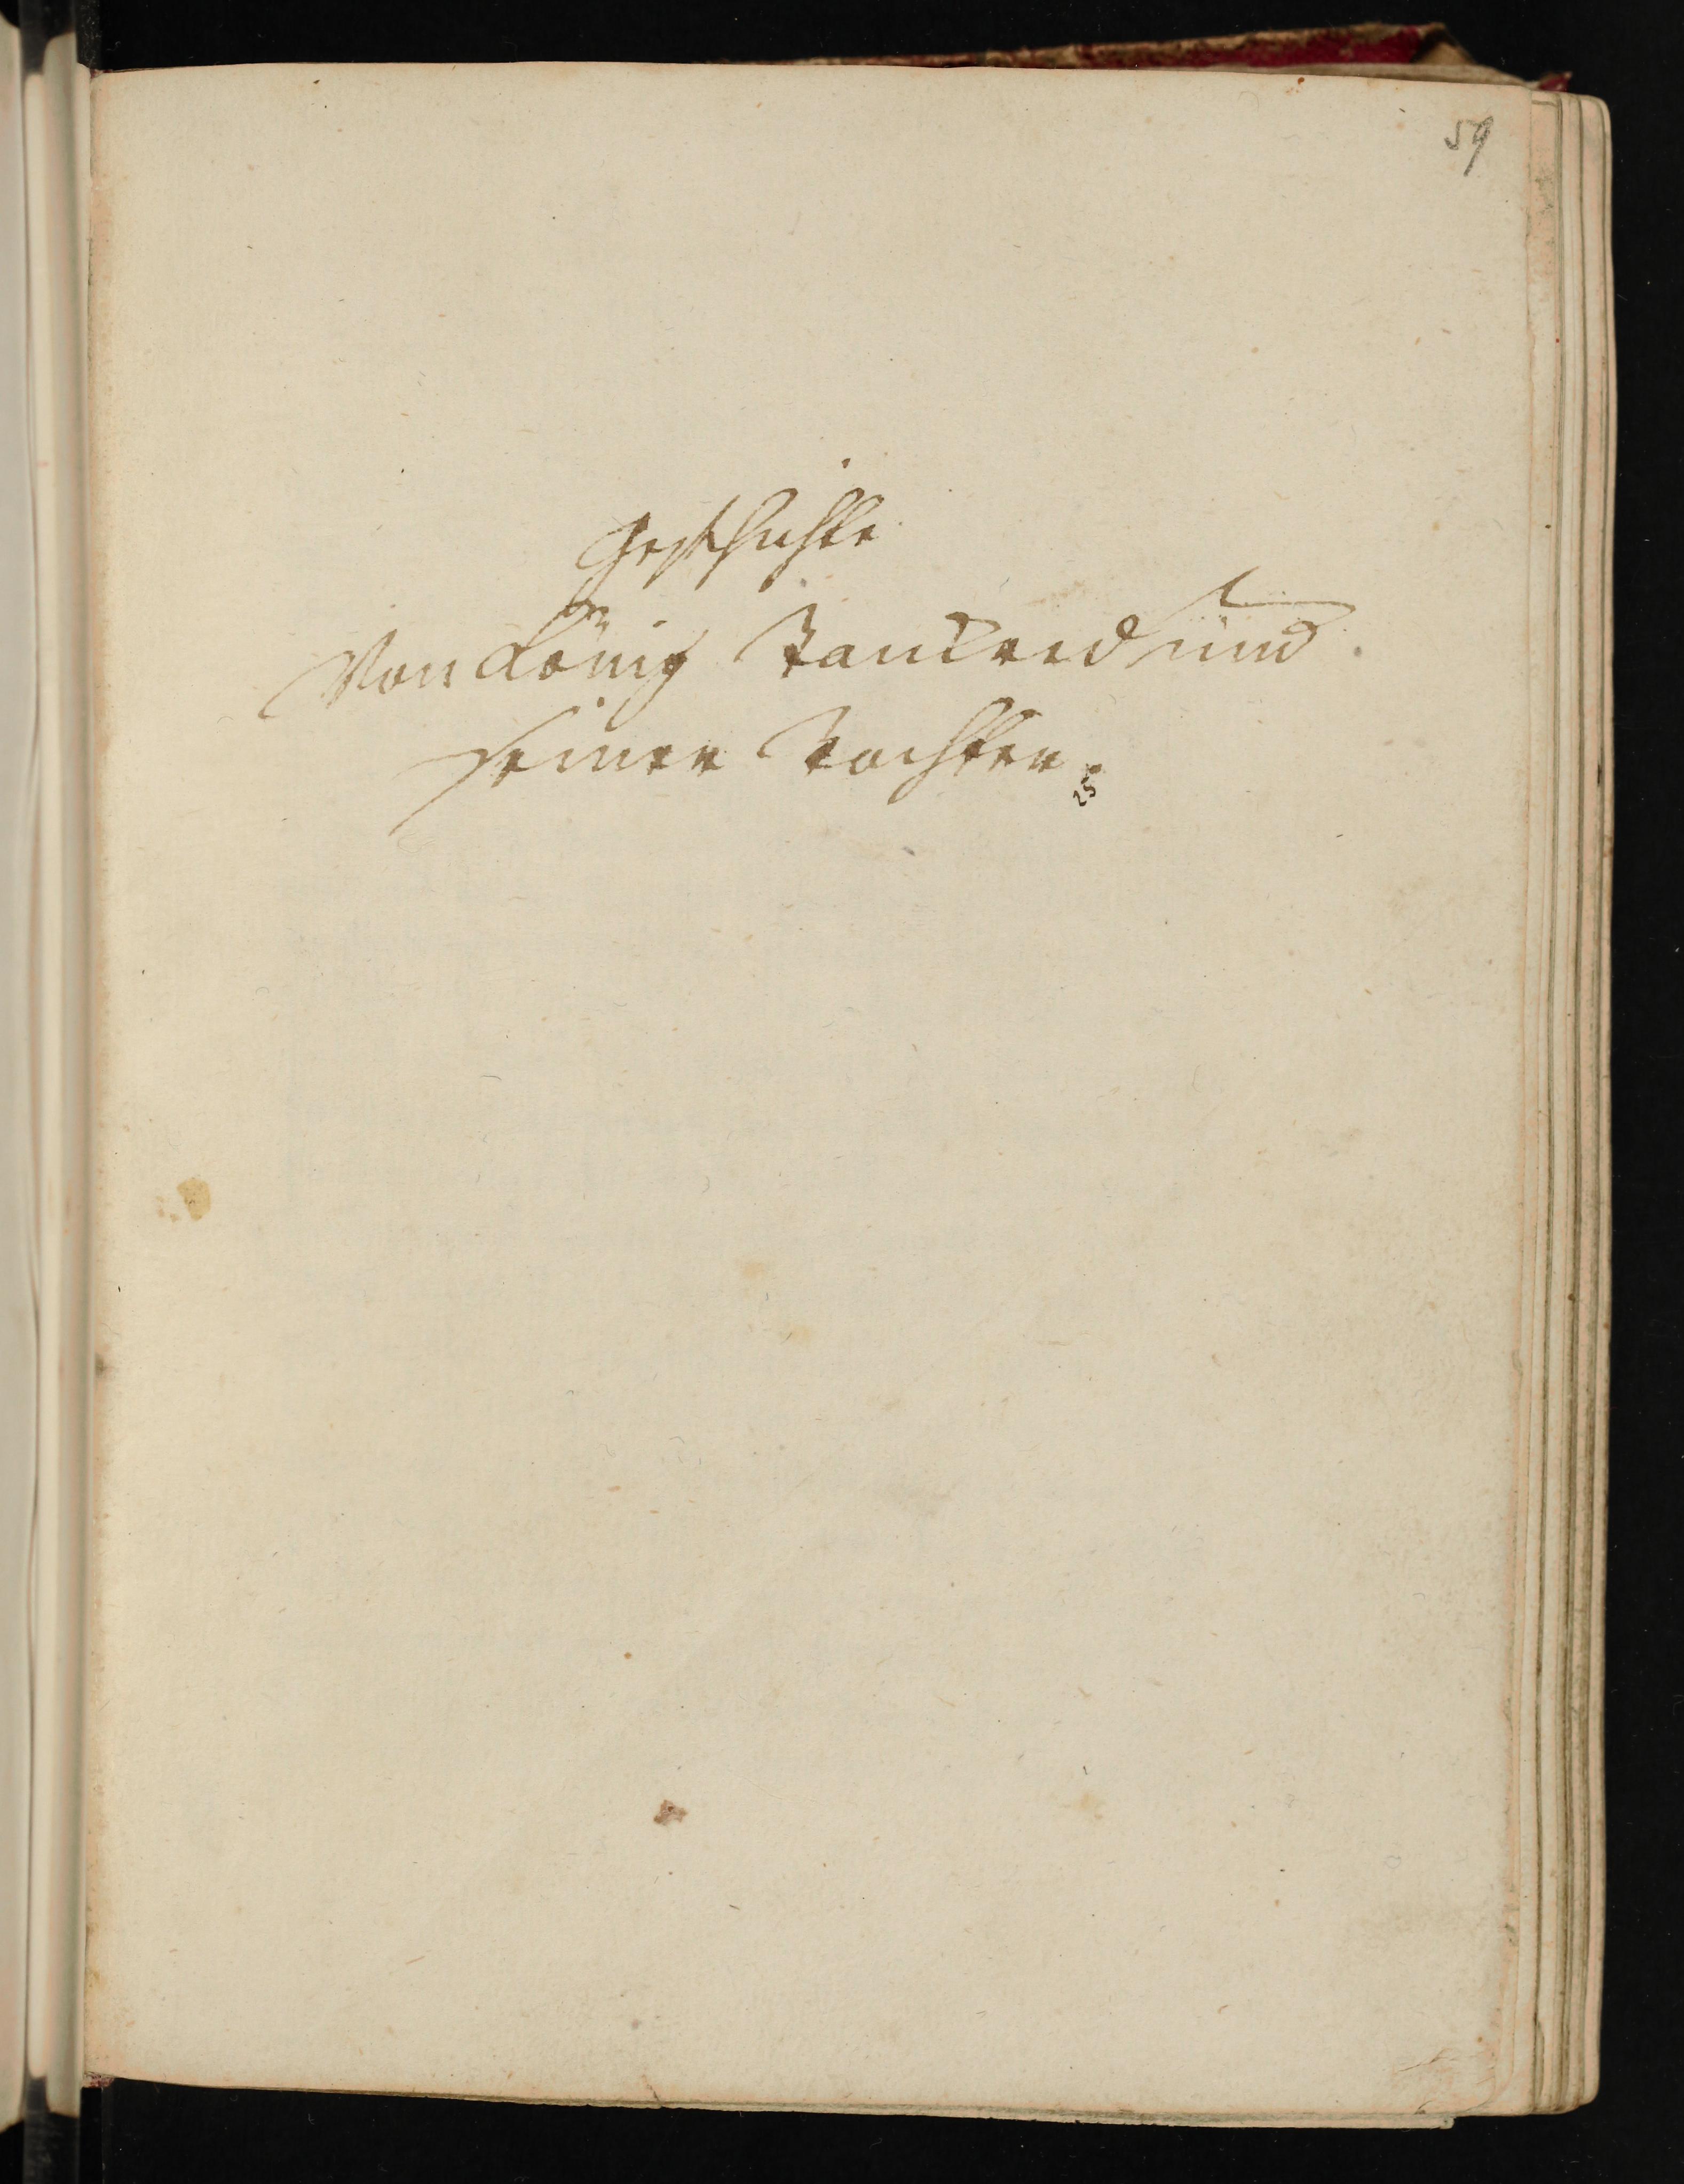 59
Geschichte
Von König Tankred und
seiner Tochter.
25